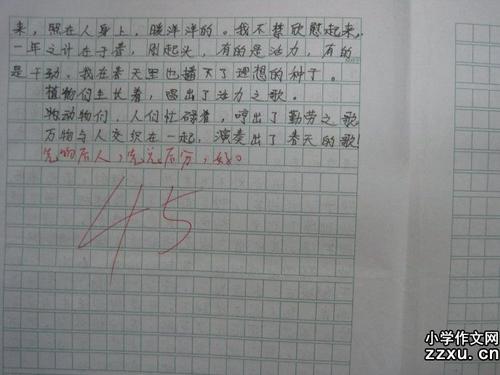 来，照在人身上，暖洋洋的。我不禁欣慰起来，
一年之计在于春，刚起头，有的是活力，有的
是干动，我在春天里也播下了理想的种子。
植物们生长着，唱出了活力之歌。
动物们，人们忙碌着，哼出了勤劳之歌
万物与人交织在一起，演奏出了春天的歌！
先物后人，先总后分，好。
45
小学作文网
zzxu.cn